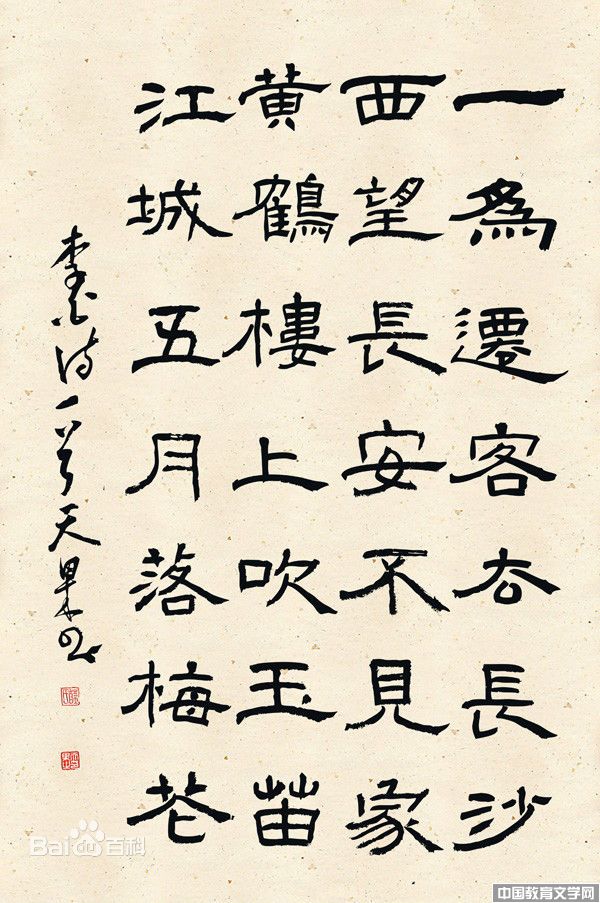 一為遷客去長沙
西望長安不見家
黄鶴樓上吹玉笛
江城五月落梅花
李白诗一首天果书
Bai百科
中国教育文学网